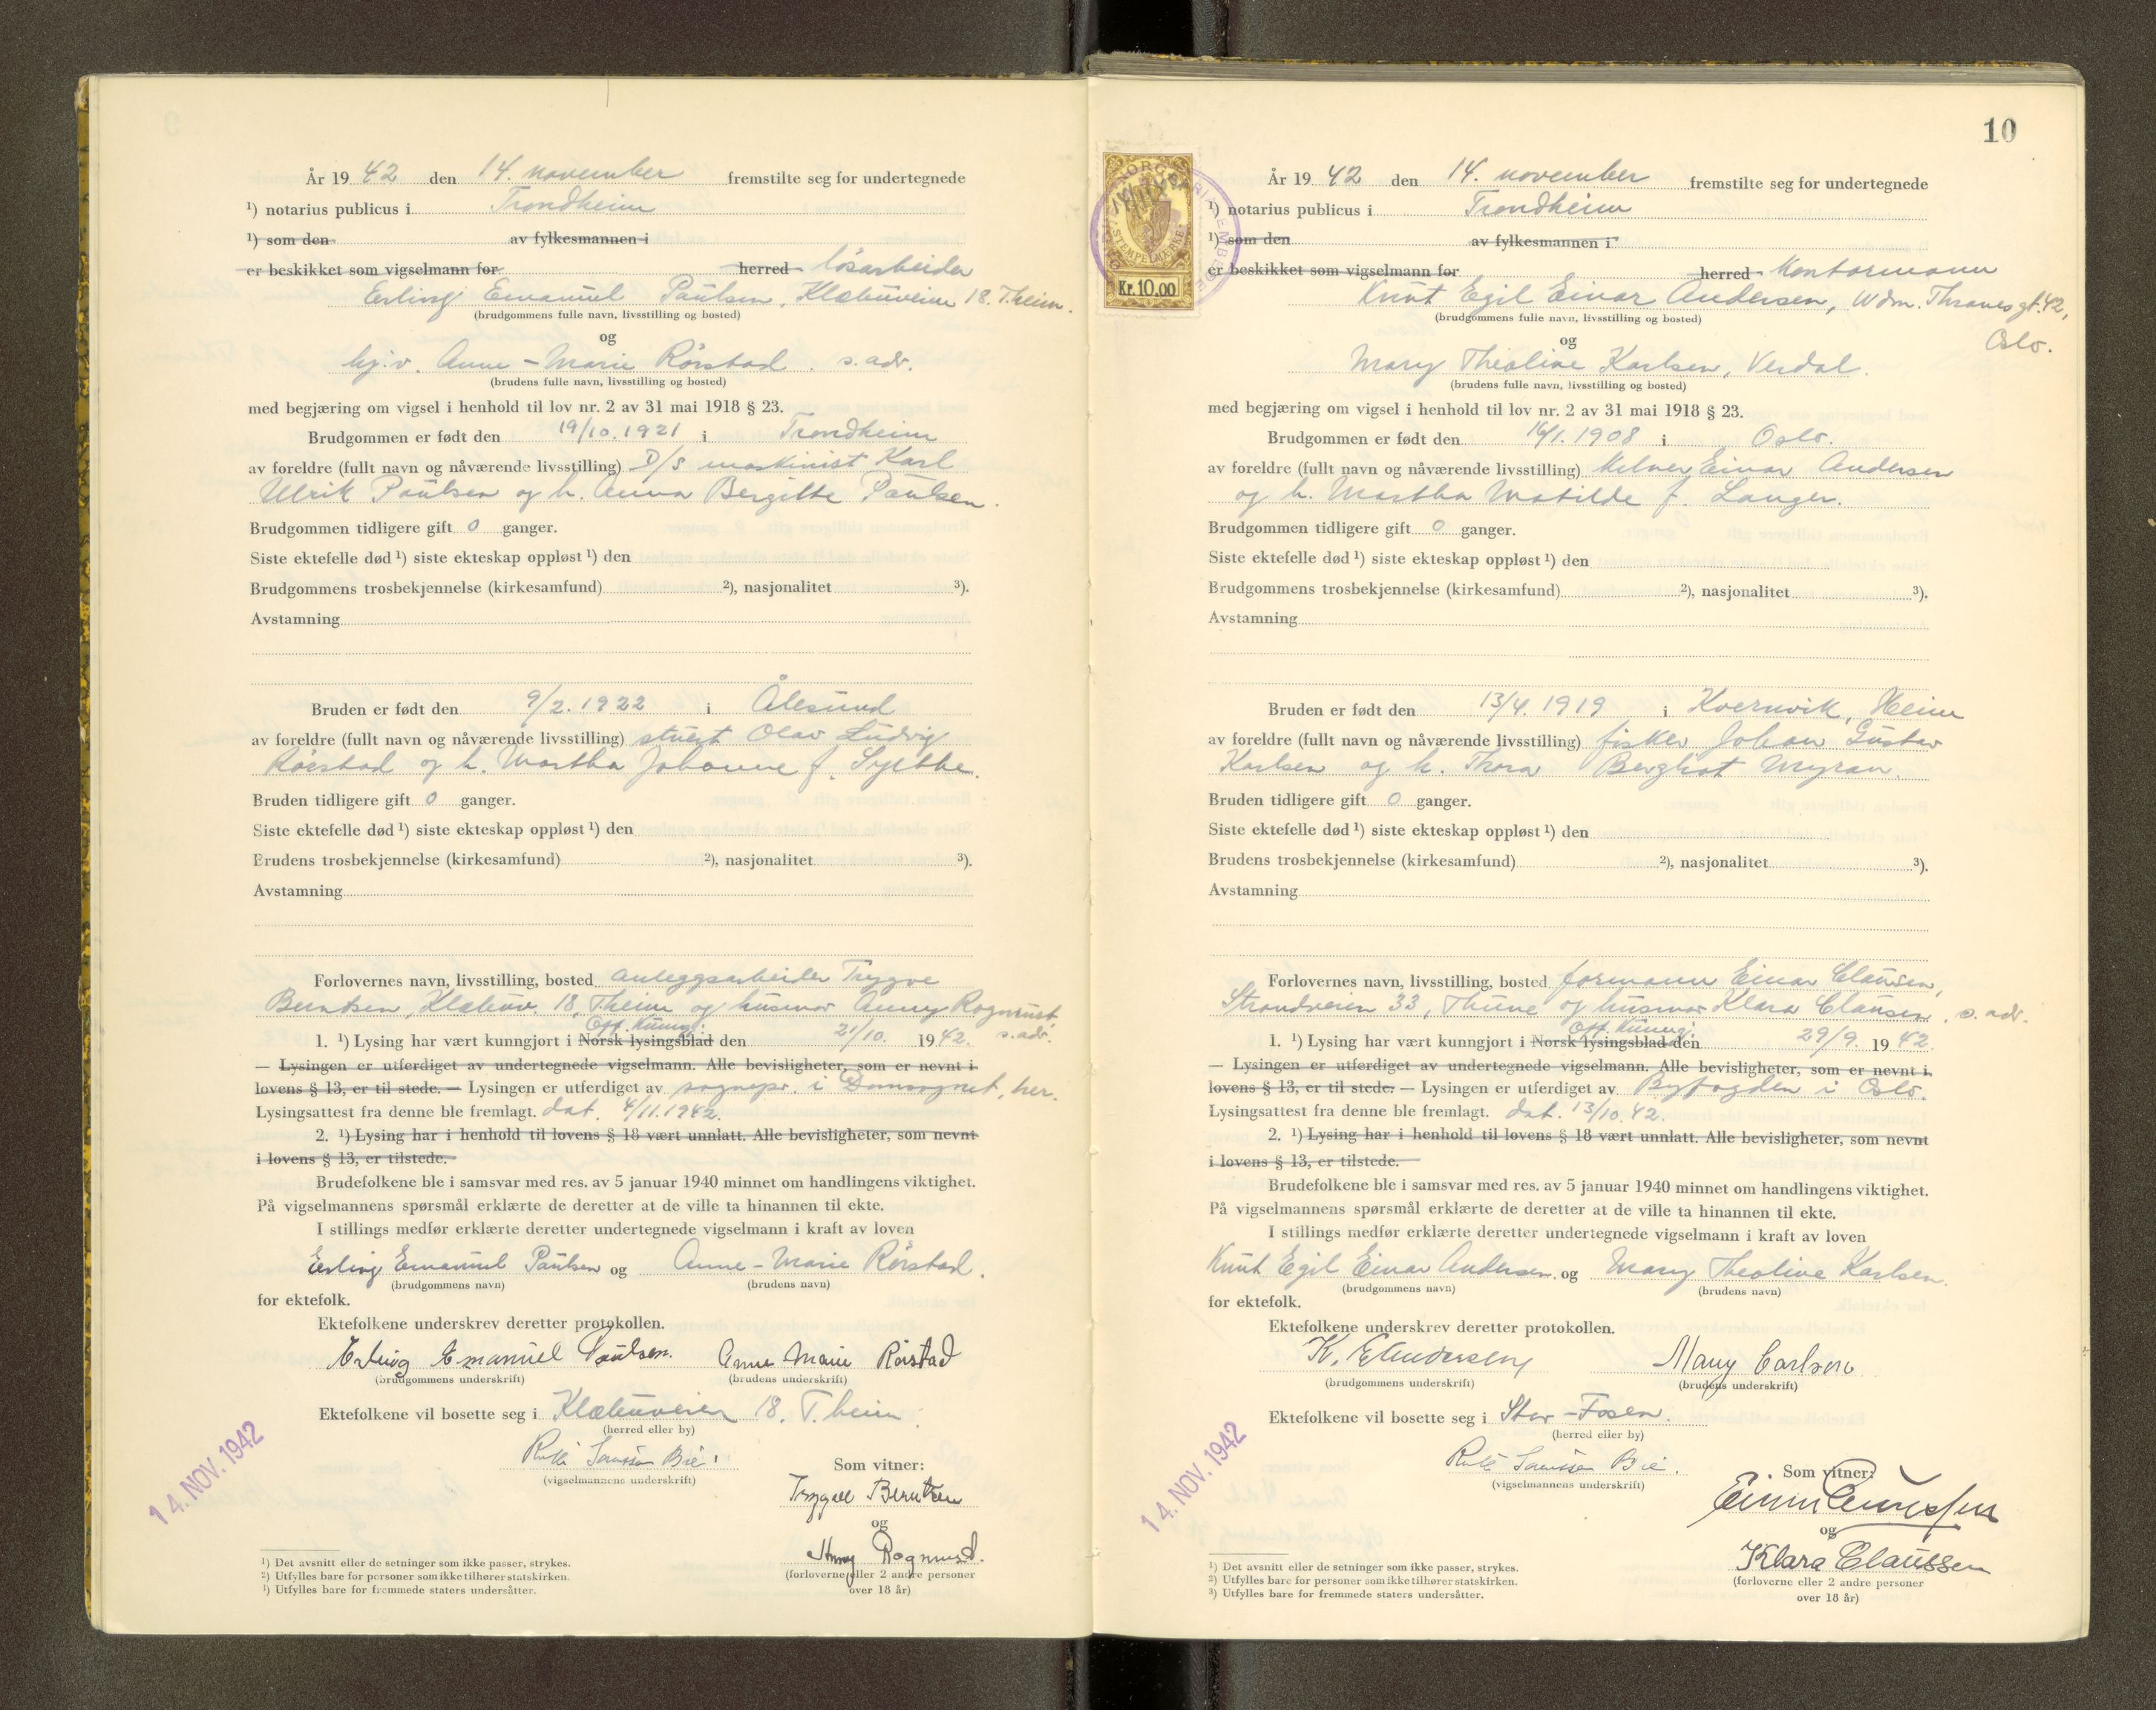 År 19 42 den 14. november fremstilte seg for undertegnede
¹) notarius publicus i Trondheim
¹) som den av fylkesmannen i
er beskikket som vigselmann for herred løsarbeider
Erling Emanuel Paulsen, Klæbuveien 18. T.heim.
(brudgommens fulle navn, livsstilling og bosted)
og
hj.v. Anne-Marie Rörstad. s. adr.
(brudens fulle navn, livsstilling og bosted)
med begjæring om vigsel i henhold til lov nr. 2 av 31 mai 1918 § 23.
Brudgommen er født den 19/10. 1921 i Trondheim
av foreldre (fullt navn og nåværende livsstilling) D/S maskinist Karl
Ulrik Paulsen og h. Anna Bergitte Paulsen.
Brudgommen tidligere gift 0 ganger.
Siste ektefelle død ¹) siste ekteskap oppløst ¹) den
Brudgommens trosbekjennelse (kirkesamfund) ²), nasjonalitet ³).
Avstamning
Bruden er født den 9/2. 1922 i Ålesund
av foreldre (fullt navn og nåværende livsstilling) stuert Olav Ludvig
Rörstad og h. Martha Johanne f. Sylthe.
Bruden tidligere gift 0 ganger.
Siste ektefelle død ¹) siste ekteskap oppløst ¹) den
Brudens trosbekjennelse (kirkesamfund) ²), nasjonalitet ³).
Avstamning
Forlovernes navn, livsstilling, bosted anleggsarbeider Trygve
Berntsen, Klæbuv. 18, T.heim og husmor Anny Rognmist s. adr.
Off. Kunng.
1. ¹) Lysing har vært kunngjort i Norsk lysingsblad den 21/10. 19 42.
— Lysingen er utferdiget av undertegnede vigselmann. Alle bevisligheter, som er nevnt i
lovens § 13, er til stede. — Lysingen er utferdiget av sognepr. i Domsognet, her.
Lysingsattest fra denne ble fremlagt. dat. 4/11. 1942.
2. ¹) Lysing har i henhold til lovens § 18 vært unnlatt. Alle bevisligheter, som nevnt
i lovens § 13, er tilstede.
Brudefolkene ble i samsvar med res. av 5 januar 1940 minnet om handlingens viktighet.
På vigselmannens spørsmål erklærte de deretter at de ville ta hinannen til ekte.
I stillings medfør erklærte deretter undertegnede vigselmann i kraft av loven
Erling Emanuel Paulsen og Anne-Marie Rörstad.
(brudgommens navn) (brudens navn)
for ektefolk.
Ektefolkene underskrev deretter protokollen.
Erling Emanuel Paulsen. Anne Marie Rörstad
(brudgommens underskrift) (brudens underskrift)
Ektefolkene vil bosette seg i Klæbuveien 18. T.heim.
(herred eller by)
(vigselmannens underskrift)
Som vitner:
Trygve Berntsen
og
(forloverne eller 2 andre personer
over 18 år)
14. NOV. 1942
¹) Det avsnitt eller de setninger som ikke passer, strykes.
²) Utfylles bare for personer som ikke tilhører statskirken.
³) Utfylles bare for fremmede staters undersåtter.
10
NORGE
STEMPELMERKE
Kr. 10.00
År 19 42 den 14. november fremstilte seg for undertegnede
¹) notarius publicus i Trondheim
¹) som den av fylkesmannen i
er beskikket som vigselmann for herred Kontormann
Knut Egil Einar Andersen, Wdm. Thranesgt. 42,
Oslo.
(brudgommens fulle navn, livsstilling og bosted)
og
Mary Theoline Karlsen, Verdal.
(brudens fulle navn, livsstilling og bosted)
med begjæring om vigsel i henhold til lov nr. 2 av 31 mai 1918 § 23.
Brudgommen er født den 16/1. 1908 i Oslo.
av foreldre (fullt navn og nåværende livsstilling) Einar Andersen
og h. Martha Matilde f. Langer.
Brudgommen tidligere gift 0 ganger.
Siste ektefelle død ¹) siste ekteskap oppløst ¹) den
Brudgommens trosbekjennelse (kirkesamfund) ²), nasjonalitet ³).
Avstamning
Bruden er født den 13/4. 1919 i Kvernvik, Heim
av foreldre (fullt navn og nåværende livsstilling) fisker Johan Gustav
Karlsen og h. Thora Berghat Myran.
Bruden tidligere gift 0 ganger.
Siste ektefelle død ¹) siste ekteskap oppløst ¹) den
Brudens trosbekjennelse (kirkesamfund) ²), nasjonalitet ³).
Avstamning
Forlovernes navn, livsstilling, bosted formann Einar Clausen,
Strandveien 33, Thune og husmor Klara Clausen. s. adr.
Off. Kunng.
1. ¹) Lysing har vært kunngjort i Norsk lysingsblad den 29/9. 19 42.
— Lysingen er utferdiget av undertegnede vigselmann. Alle bevisligheter, som er nevnt i
lovens § 13, er til stede. — Lysingen er utferdiget av Byfogden i Oslo.
Lysingsattest fra denne ble fremlagt. dat. 13/10. 42.
2. ¹) Lysing har i henhold til lovens § 18 vært unnlatt. Alle bevisligheter, som nevnt
i lovens § 13, er tilstede.
Brudefolkene ble i samsvar med res. av 5 januar 1940 minnet om handlingens viktighet.
På vigselmannens spørsmål erklærte de deretter at de ville ta hinannen til ekte.
I stillings medfør erklærte deretter undertegnede vigselmann i kraft av loven
Knut Egil Einar Andersen. og Mary Theoline Karlsen.
(brudgommens navn) (brudens navn)
for ektefolk.
Ektefolkene underskrev deretter protokollen.
K. E. Andersen Mary Carlsen
(brudgommens underskrift) (brudens underskrift)
Ektefolkene vil bosette seg i Stor-Fosen.
(herred eller by)
(vigselmannens underskrift)
Som vitner:
og
Klara Claussen
(forloverne eller 2 andre personer
over 18 år)
14. NOV. 1942
¹) Det avsnitt eller de setninger som ikke passer, strykes.
²) Utfylles bare for personer som ikke tilhører statskirken.
³) Utfylles bare for fremmede staters undersåtter.